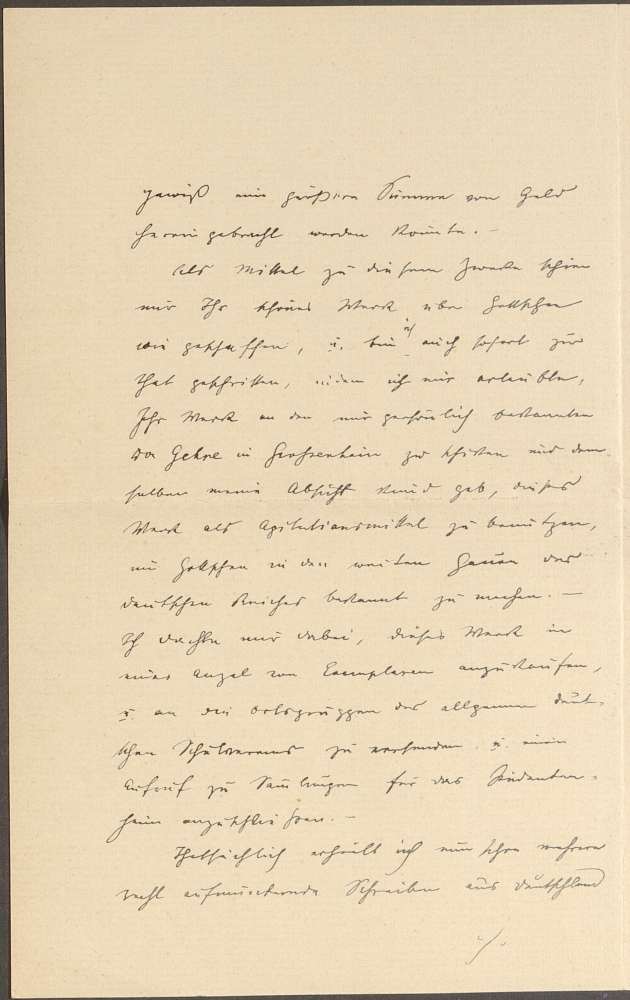 gewiß eine größere Summe von Geld
hereingebracht werden konnte. –
Als Mittel zu diesem Zwecke schien
mir Ihr schönes Werk über Gottschee
wie geschaffen, u. bin ich auch sofort zur
That geschritten, indem ich mir erlaubte,
Ihr Werk an den mir persönlich bekannten
Gehre in Grossenhain zu schicken und dem-
selben meine Absicht kund gab, dieses
Werk als Agitationsmittel zu benützen,
um Gottschee in den weiten Gauen des
deutschen Reiches bekannt zu machen. –
Ich dachte mir dabei, dieses Werk in
einer Anzal von Exemplaren anzukaufen,
u. an die Ortsgruppen des allgemein deut-
schen Schulvereins zu versenden u. einen
Aufruf zu Samlungen für das Studenten-
heim anzuschließen. –
Thatsächlich erhielt ich nun schon mehrere
recht aufmunternde Schreiben aus Deutschland
./.